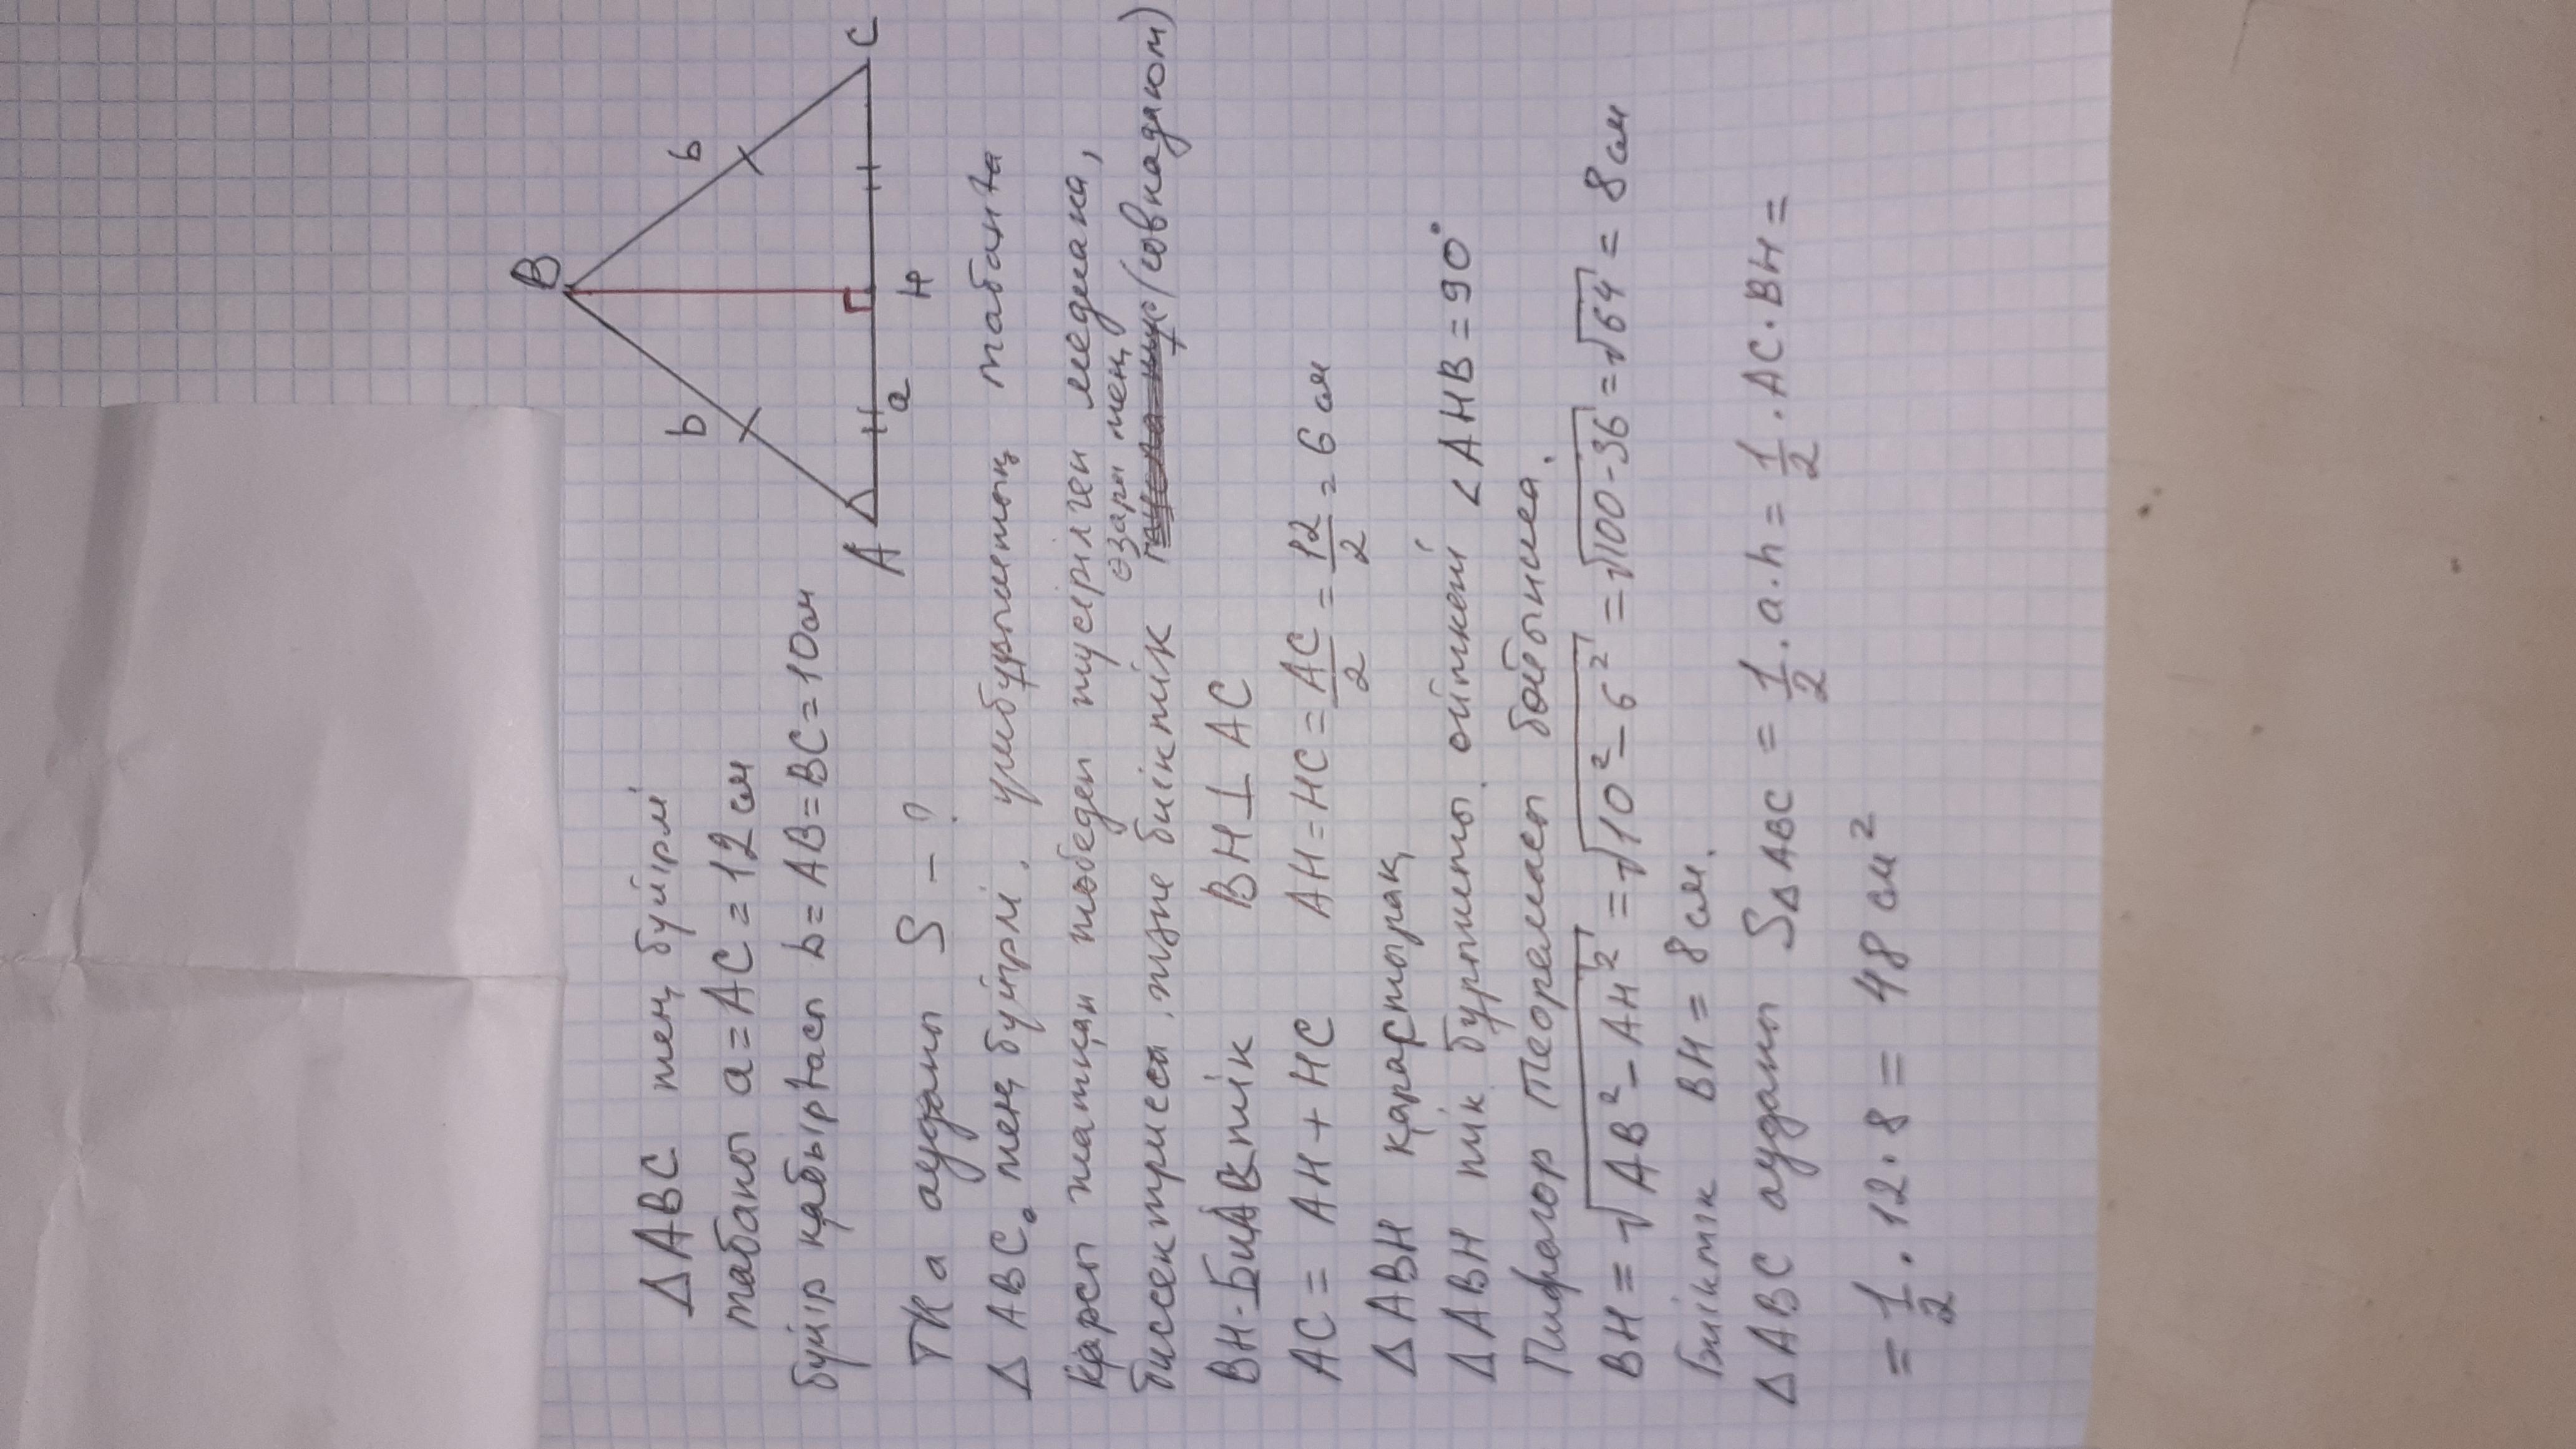 B
b
b
A
a
H
C
ΔABC тең бүйірлі
табаны a = AC = 12 см
бүйір қабырғасы b = AB = BC = 10 см
ТК а ауданы S - ?
ΔABC. тең бүйірлі. үшбұрыштың табанға
қарсы жатқан төбеден түсірілген медиана,
өзара тең
биссектриса, және биіктік (совпадают)
BH - Биіктік BH ⊥ AC
AC = AH + HC AH = HC = AC/2 = 12/2 = 6 см
ΔABH қарастырақ
ΔABH тік бұрышты. өйткені <AHB = 90°
Пифагор теоремасы бойынша.
BH = √AB² - AH² = √10² - 6² = √100 - 36 = √64 = 8 см
Биіктік BH = 8 см.
ΔABC ауданы SΔABC = 1/2 · a · h = 1/2 · AC · BH =
= 1/2 · 12 · 8 = 48 см²